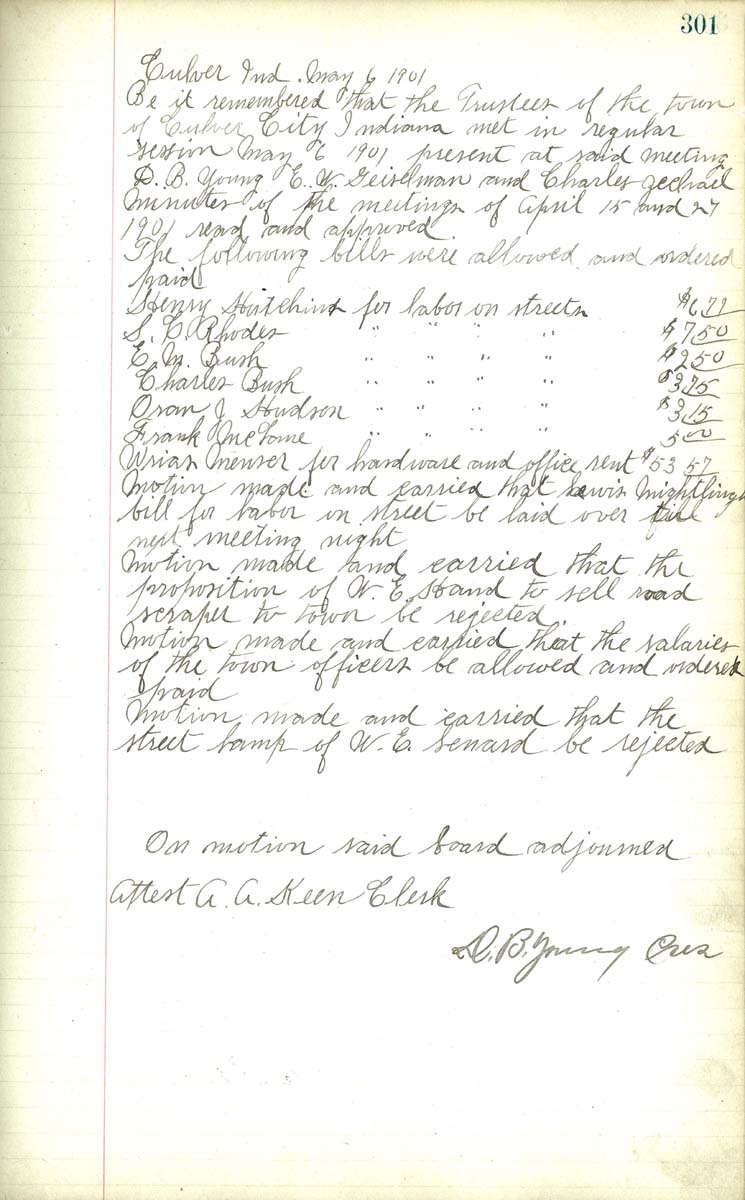 301
Culver Ind. May 6 1901
Be it remembered that the Trustees of the town
of Culver City Indiana met in regular
session May 6 1901 present at said meeting
D. B. Young E. W. Geiselman and Charles Zechiel
Minutes of the meetings of April 15 and 27
1901 read and approved
The following bills were allowed and ordered
paid
Henry Hutchins for labor on streets $6 
S. C. Rhodes " " " " $7 50
E. M. Bush " " " " $2 50
Charles Bush " " " " $3 75
Oran J Hudson " " " " $3 15
Frank McLane " " " " 5 00
Urias Menser for hardware and office rent $53 57
Motion made and carried that Lewis
bill for labor on street be laid over till
next meeting night
Motion made and carried that the
proposition of W. E. Hand to sell road
scraper to town be rejected
Motion made and carried that the salaries
of the town officers be allowed and ordered
paid
Motion made and carried that the
street lamp of W. E. be rejected
On motion said board adjourned
Attest A. A. Keen Clerk
D. B. Young Pres